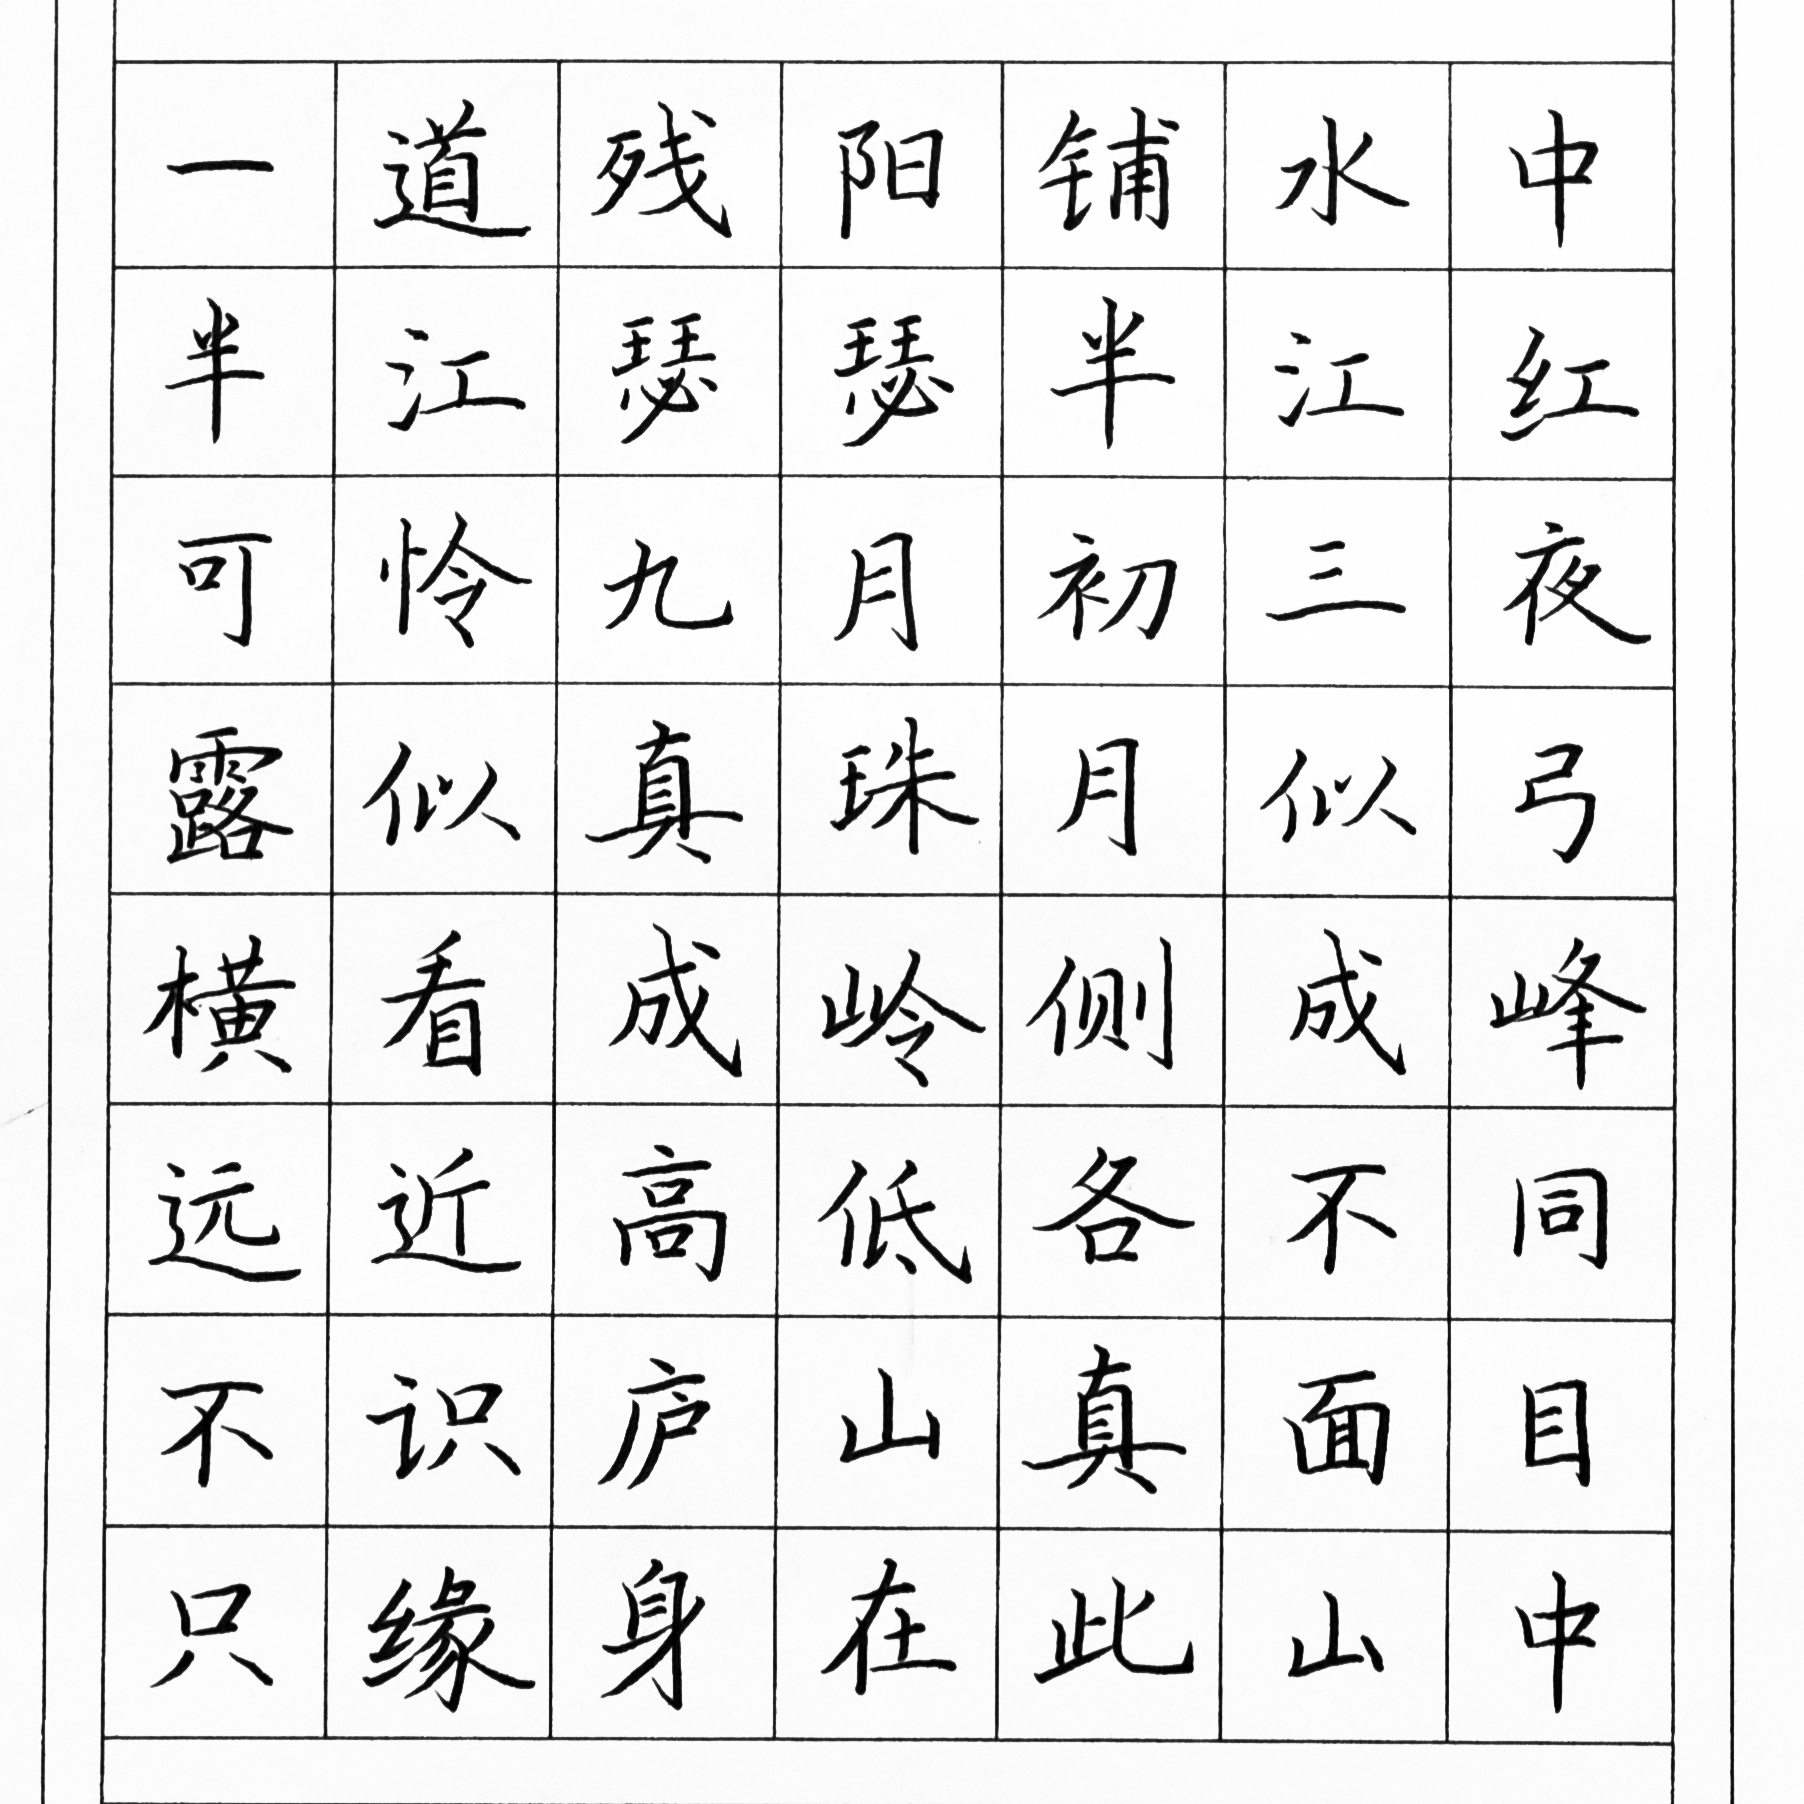 一道残阳铺水中
半江瑟瑟半江红
可怜九月初三夜
露似真珠月似弓
横看成岭侧成峰
远近高低各不同
不识庐山真面目
只缘身在此山中